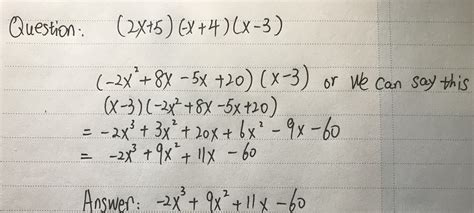 Question: (2x+5)(-x+4)(x-3)
(-2x²+8x-5x+20)(x-3) or we can say this
(x-3)(-2x²+8x-5x+20)
= -2x³+3x²+20x+6x²-9x-60
= -2x³+9x²+11x-60
Answer: -2x³+9x²+11x-60